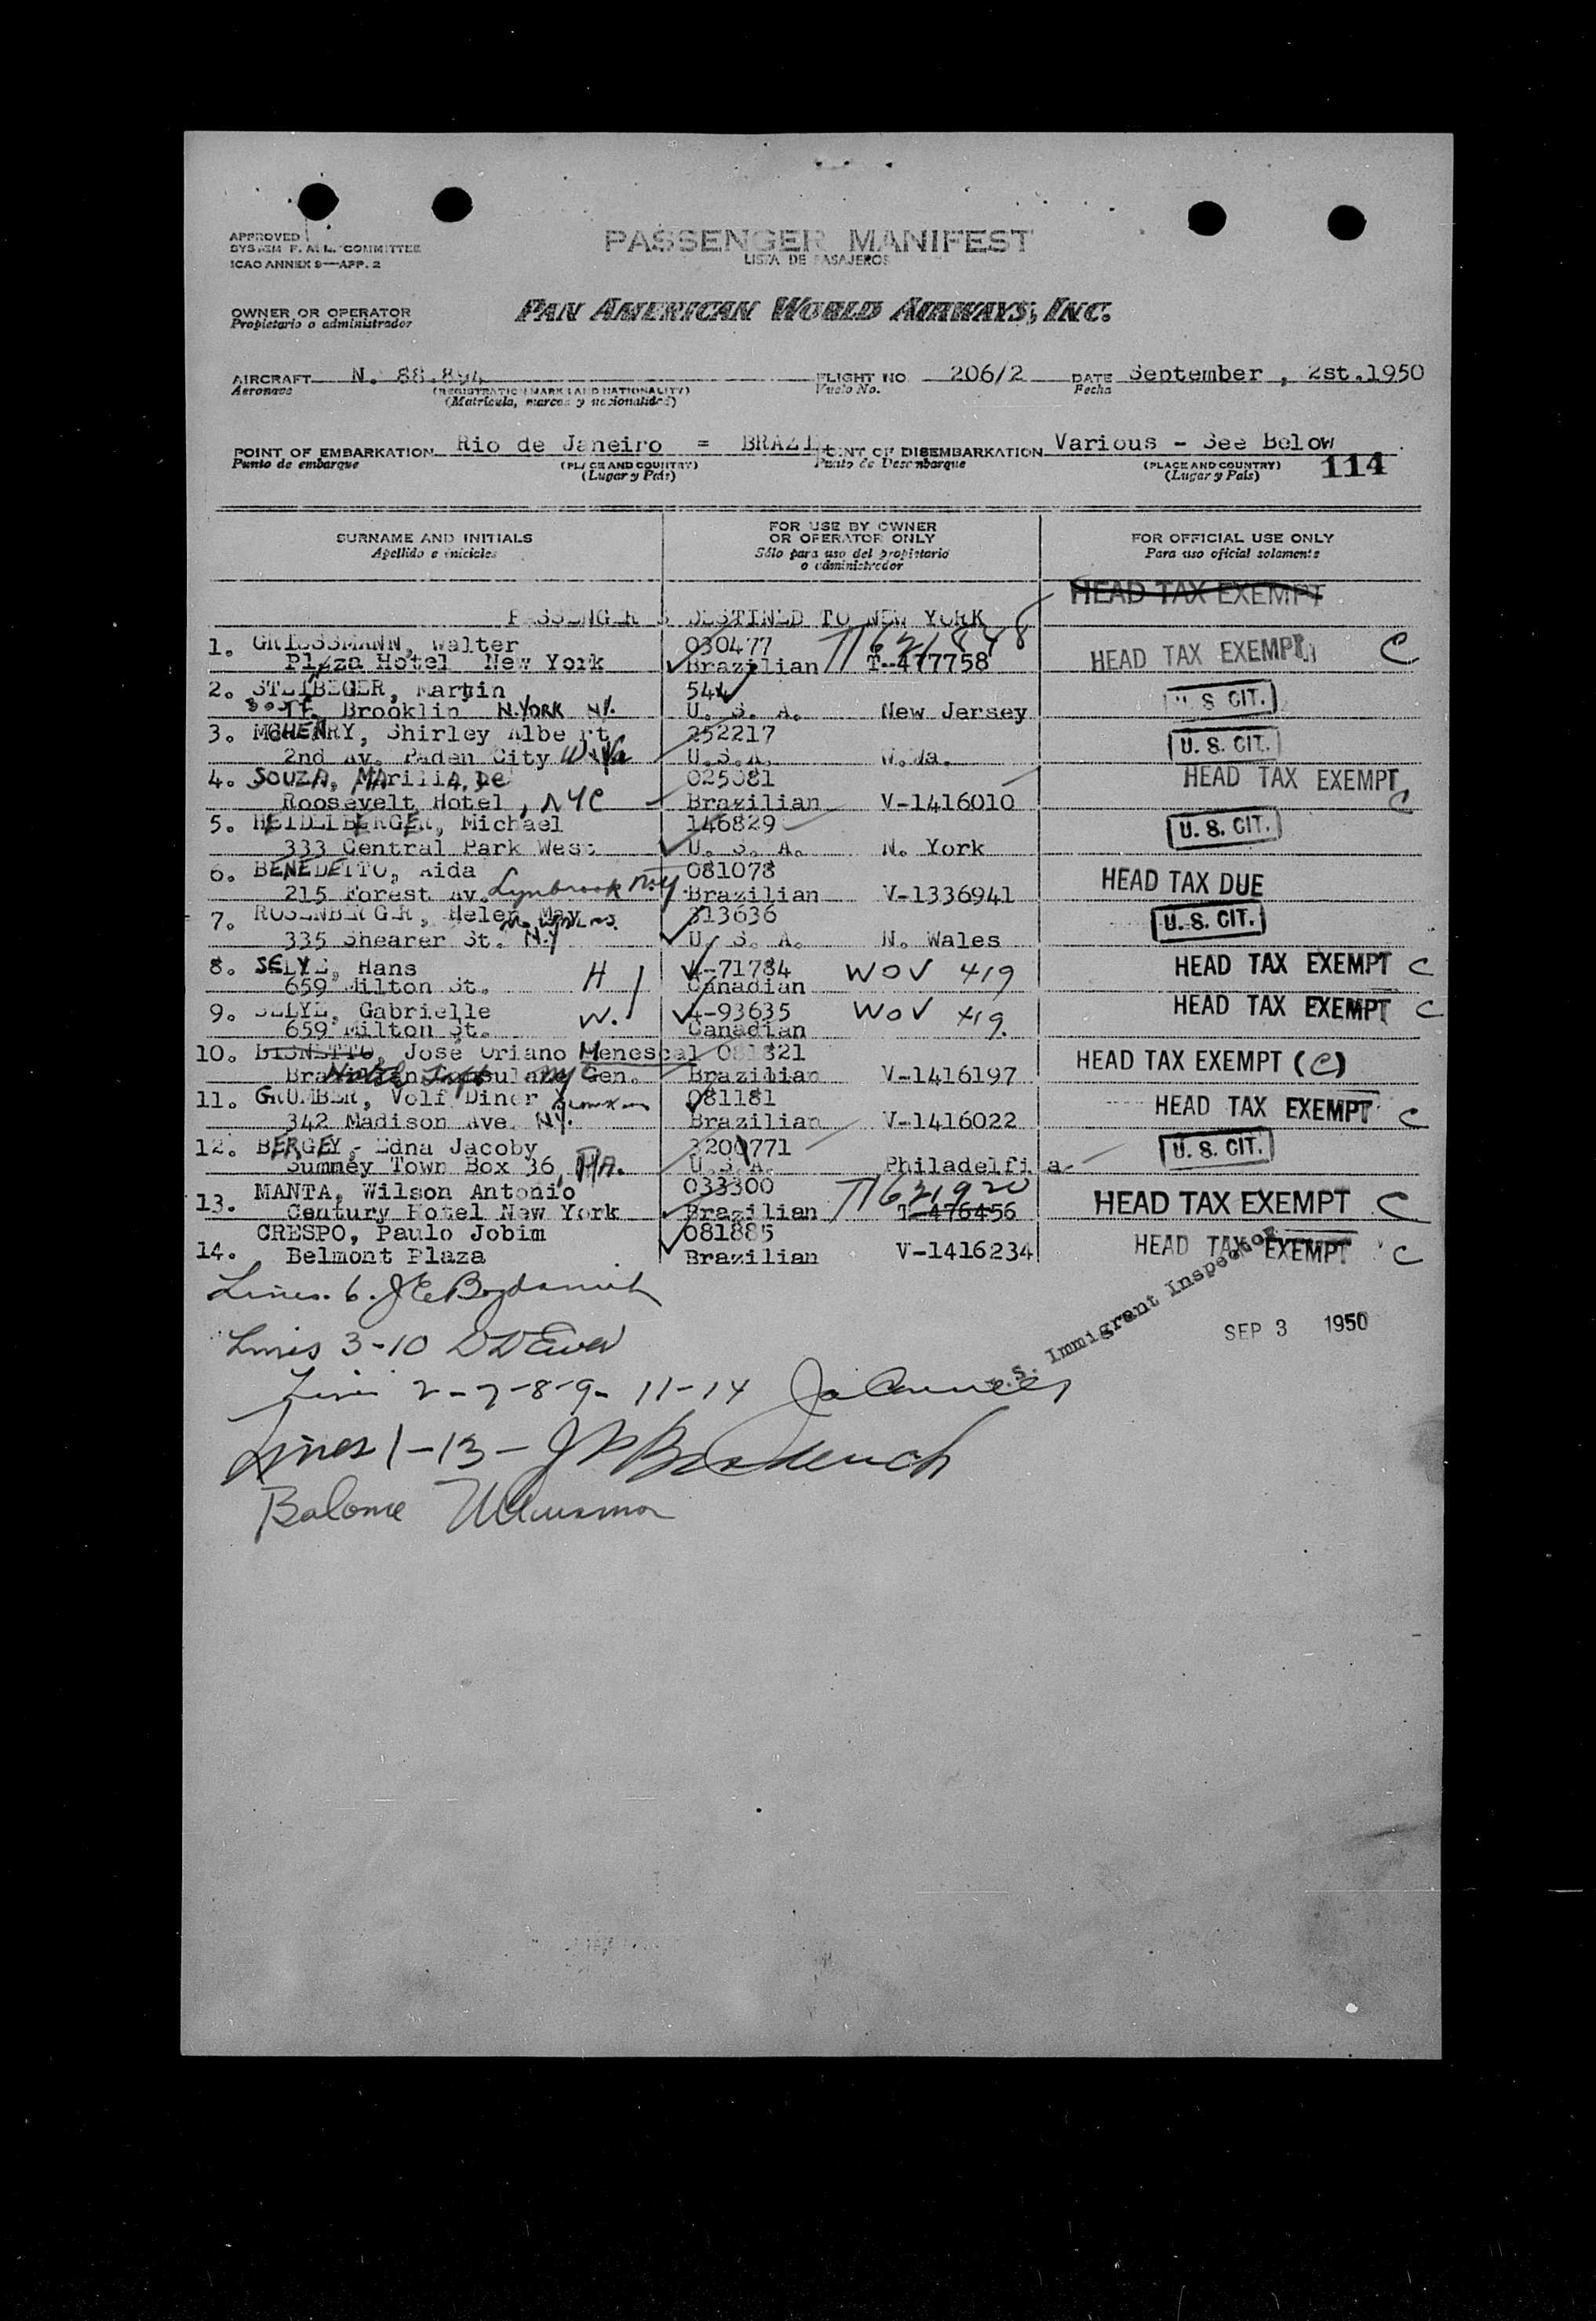 APPROVED
SYSTEM F. A. L. COMMITTEE
ICAO ANNEX 9—APP. 2
PASSENGER MANIFEST
LISTA DE PASAJEROS
OWNER OR OPERATOR
Propietario o administrador
PAN AMERICAN WORLD AIRWAYS, INC.
AIRCRAFT N. 88.894 FLIGHT NO. 206/2 DATE September , 2st.1950
Aeronave (REGISTRATION MARK AND NATIONALITY) Vuelo No. Fecha
(Matricula, marcas y nacionalidad)
POINT OF EMBARKATION Rio de Janeiro = BRAZIL POINT OF DISEMBARKATION Various - See Below
Punto de embarque (PLACE AND COUNTRY) Punto de Desembarque (PLACE AND COUNTRY) 114
(Lugar y País) (Lugar y País)
SURNAME AND INITIALS FOR USE BY OWNER OR OPERATOR ONLY FOR OFFICIAL USE ONLY
Apellido e iniciales Sólo para uso del propietario o administrador Para uso oficial solamente
HEAD TAX EXEMPT
PASSENGERS DESTINED TO NEW YORK
1. GRIESSMANN, Walter 030477 T1621878
Plaza Hotel New York Brazilian T-477758 HEAD TAX EXEMPT C
2. Martin 544
Brooklin N.YORK NY. U. S. A. New Jersey U S CIT.
3. MCHENRY, Shirley Albert 252217
2nd Av. Paden City W.Va U.S.A. W.Wa. U. S. CIT.
4. SOUZA, MArilIA, De 025081
Roosevelt Hotel, NYC Brazilian V-1416010 HEAD TAX EXEMPT C
5. HEIDELBERGER, Michael 146829
333 Central Park West U. S. A. N. York U. S. CIT.
6. BENEDETTO, Aida 081078
215 Forest Av. Lynbrook N.Y. Brazilian V-1336941 HEAD TAX DUE
7. ROSENBERGER, Helen May 313636
335 Shearer St. U. S. A. N. Wales U. S. CIT.
8. SELYE, Hans H 4-71784 WOV 419
659 Milton St. Canadian HEAD TAX EXEMPT C
9. SELYE, Gabrielle W. 4-93635 WOV 419.
659 Milton St. Canadian HEAD TAX EXEMPT C
10. José Oriano Menescal 081821
Gen. Brazilian V-1416197 HEAD TAX EXEMPT (C)
11. GRUMBER, Volf Diner 081181
342 Madison Ave. NY. Brazilian V-1416022 HEAD TAX EXEMPT C
12. BERGEY - Edna Jacoby 3200771
Sumney Town Box 36, PA. U.S.A. Philadelfia U. S. CIT.
13. MANTA, Wilson Antonio 033300 T1621920
Century Hotel New York Brazilian T-476456 HEAD TAX EXEMPT C
14. CRESPO, Paulo Jobim 081885
Belmont Plaza Brazilian V-1416234 HEAD TAX EXEMPT C
Lines. 6.
U.S. Immigrant Inspector
SEP 3 1950
Lines 3-10
Lines 2-7-8-9- 11-14
Lines 1-13-